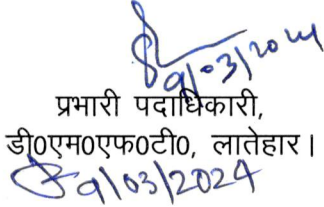 9/03/2024
प्रभारी पदाधिकारी,
डी0एम0एफ0टी0, लातेहार।
9/03/2024